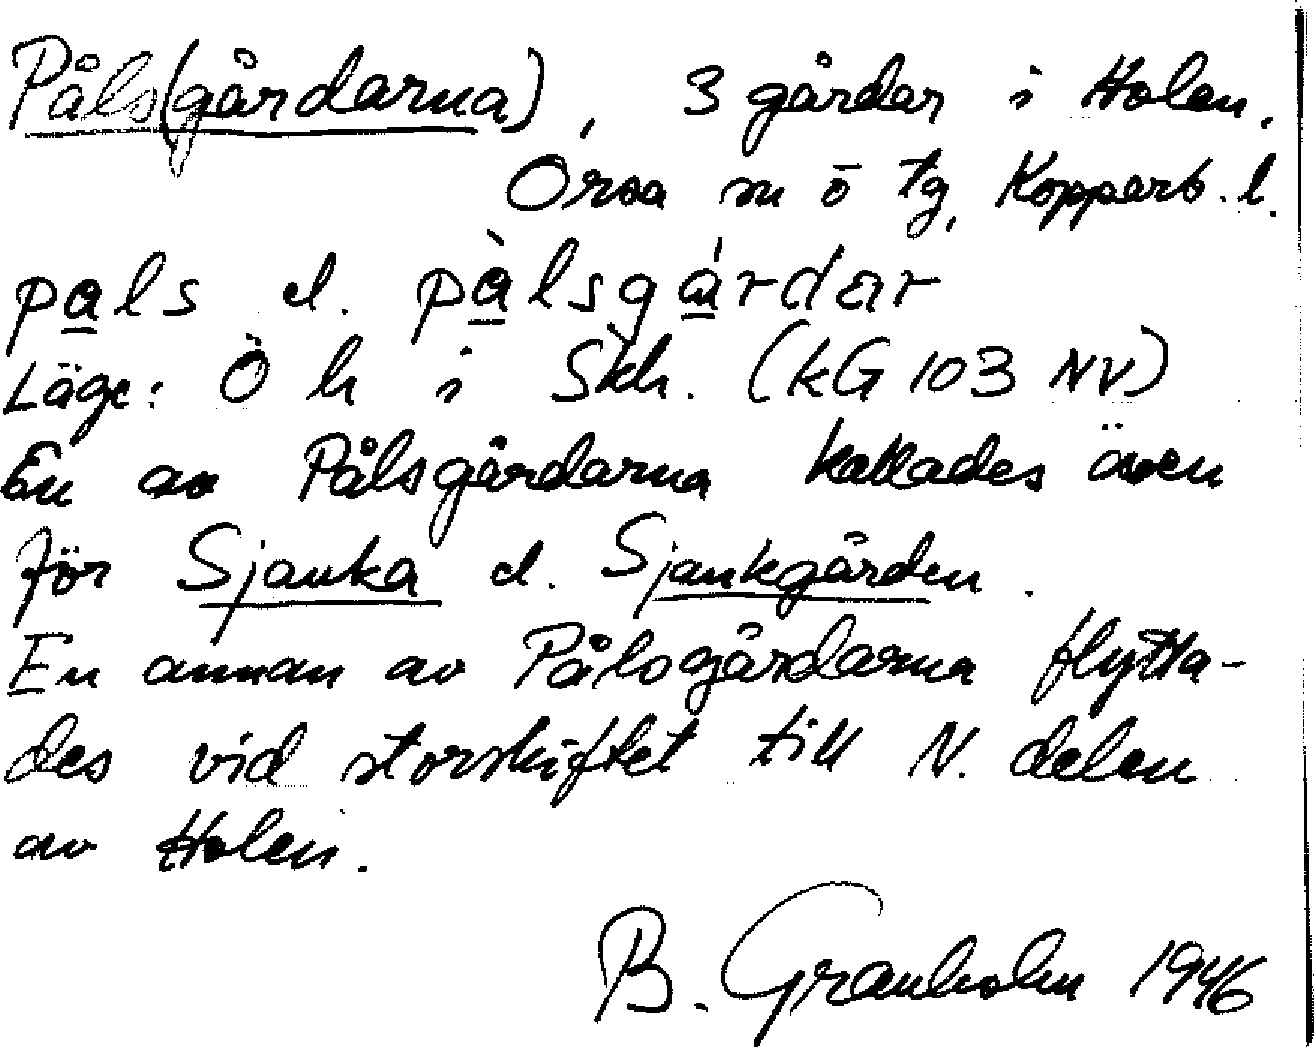 Påls(gårdarna), 3 gårdar i Holen,
Orsa sn ö tg, Kopparb. l.
pals el. pàlsgárdar
Läge: Ö h i Skh. (kG 103 NV)
En av Pålsgårdarna kallades även
för Sjanka el. Sjankgården.
En annan av Pålsgårdarna flytta-
des vid storskiftet till N. delen
av Holen.
B. Granholm 1946